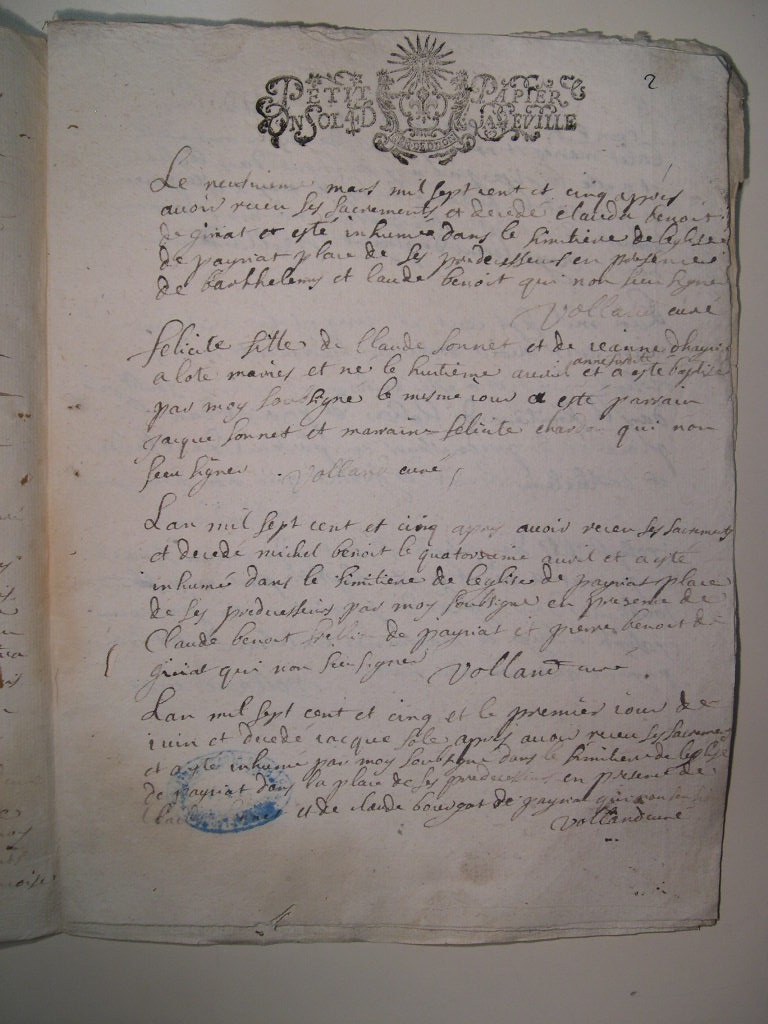 2
PETIT PAPIER
UN SOL 4 D LA FEUILLE
Le neufvieme mars mil sept cent et cinq apres
avoir receu ses sacrements et decedé claudu benoit
de giriat et esté inhumé dans le simitiere de leglise
de payriat place de ses predecesseurs en presence
de barthelemy et claude benoit qui non sceu signe
Volland curé
felicite fille de Claude sonnet et de ieanne
a lote maries et ne le huitieme avril et a esté baptise
par moy soubsigné le mesme iour a esté parrain
jacque sonnet et marraine felicite chardon qui non
sceu signer Volland curé
Lan mil sept cent et cinq apres avoir receu ses sacrements
et decede michel benoit le quatorsieme avril et a esté
inhumé dans le simitiere de leglise de payriat place
de ses predecesseurs par moy soubsigne en presence de
Claude benoit de payriat et pierre benoit de
giriat qui non sceu signer Volland curé
Lan mil sept cent et cinq et le premier iour de
iuin et decede iacque sole apres avoir receu ses sacremen
et a este inhumé par moy soubsigne dans le simitiere de leglise
de payriat dans la place de ses predecesseurs en presence de
et de claude bouvgot de payriat qui non sceu
Volland curé